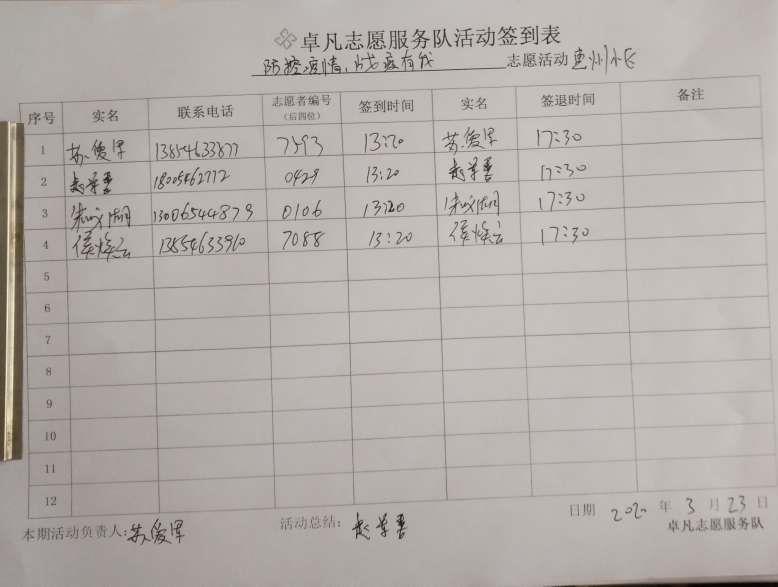 卓凡志愿服务队活动签到表
防控疫情,战疫有我 志愿活动 惠州小区
序号 实名 联系电话 志愿者编号(后四位) 签到时间 实名 签退时间 备注
1 苏爱军 13854633877 7593 13:20 苏爱军 17:30
2 赵学善 18005462772 0429 13:20 赵学善 17:30
3 13006544879 0106 13:20 17:30
4 侯焕云 13854633960 7088 13:20 侯焕云 17:30
5
6
7
8
9
10
11
12
本期活动负责人:苏爱军 活动总结:赵学善 日期 2020 年 3 月 23 日
卓凡志愿服务队